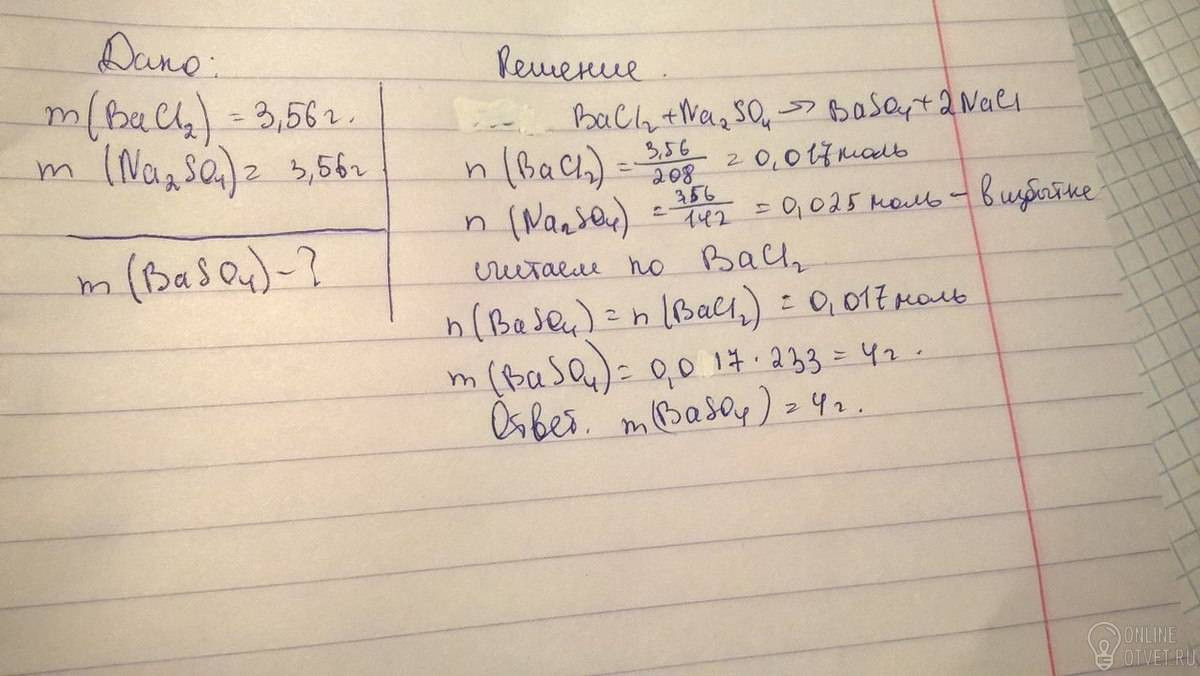 Дано:
m(BaCl₂) = 3,56 г.
m (Na₂SO₄) = 3,56 г
m (BaSO₄) - ?
Решение.
BaCl₂ + Na₂SO₄ → BaSO₄ + 2NaCl
n (BaCl₂) = 3,56/208 = 0,017 моль
n (Na₂SO₄) = 3,56/142 = 0,025 моль – в избытке
считаем по BaCl₂
n (BaSO₄) = n (BaCl₂) = 0,017 моль
m (BaSO₄) = 0,017 · 233 = 4 г.
Ответ. m(BaSO₄) = 4 г.
ONLINE
OTVET.RU